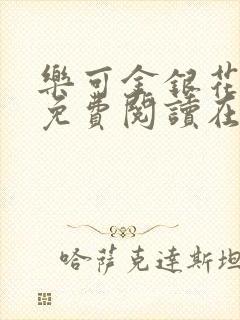 樂可金銀花
免費閱讀在
哈薩克達斯坦